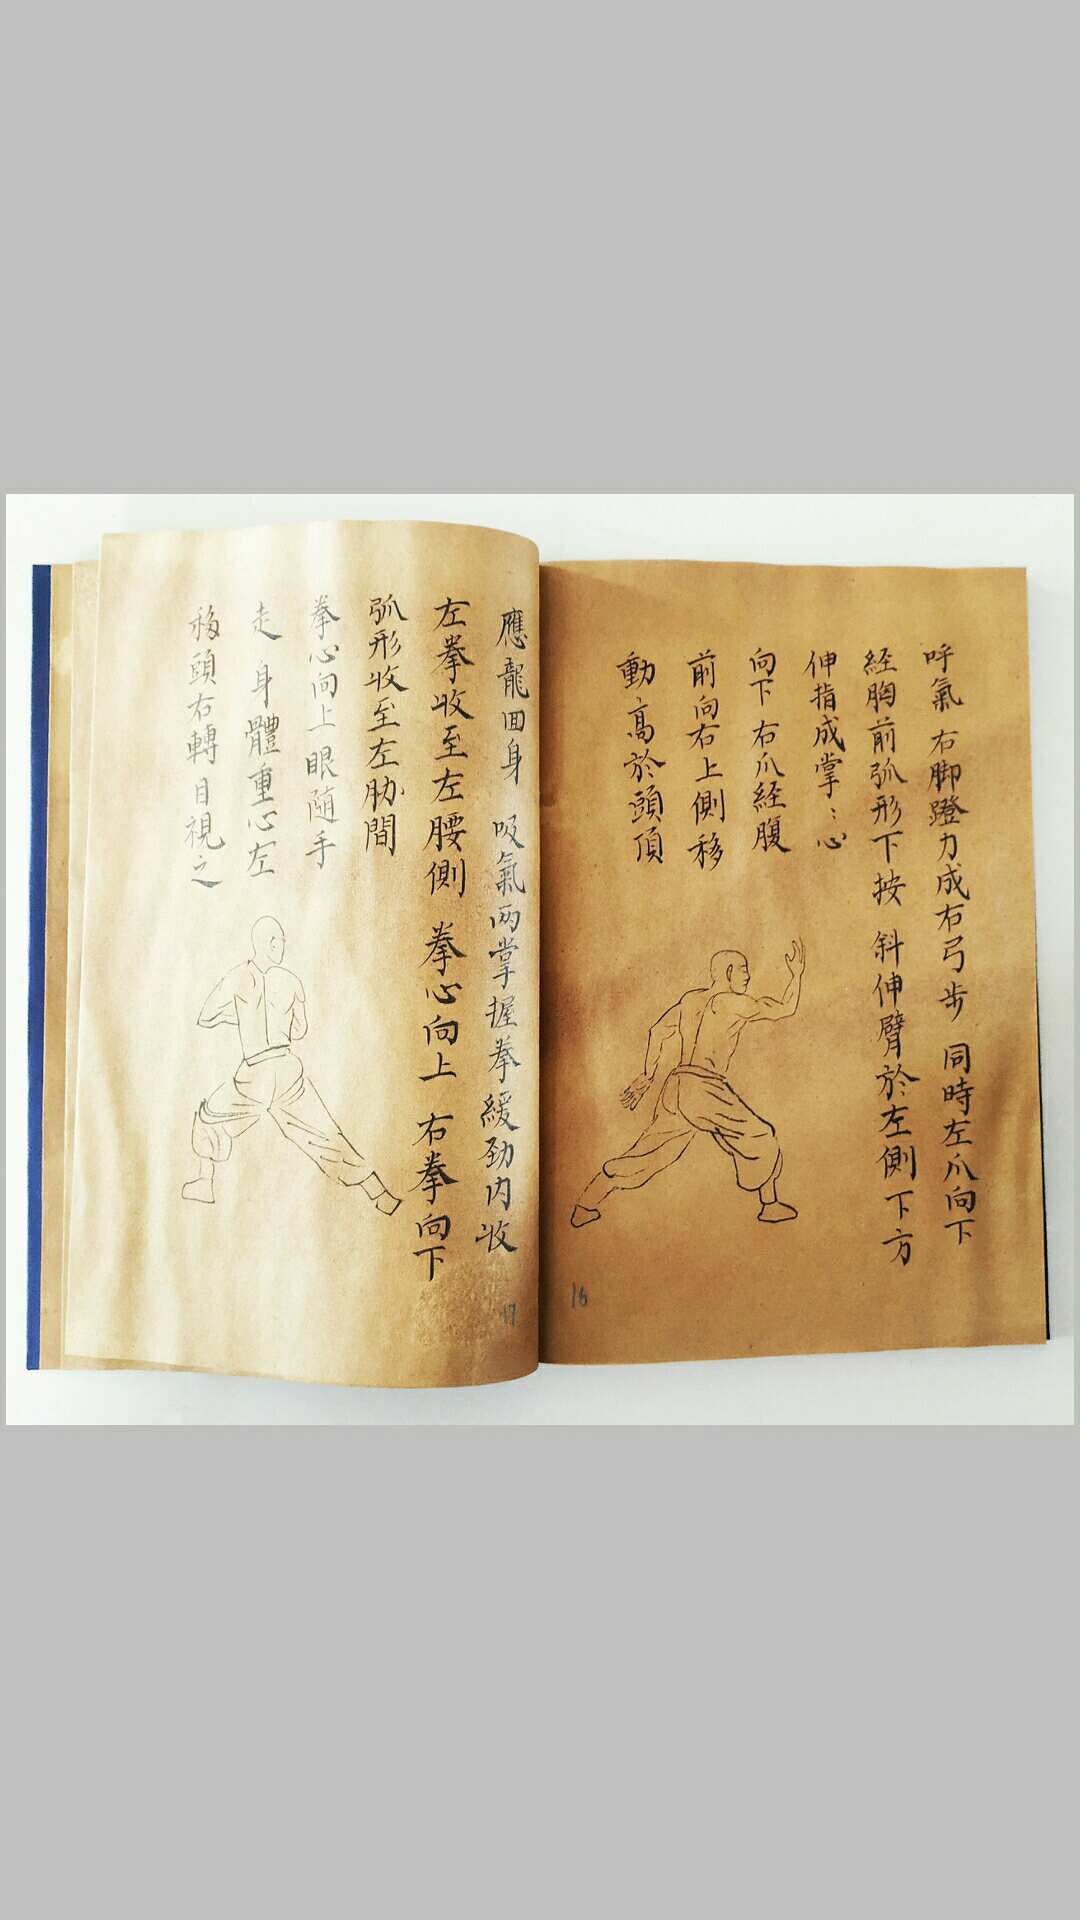 呼氣 右脚蹬力成右弓步 同時左爪向下
經胸前弧形下按 斜伸臂於左側下方
伸指成掌：心
向下 右爪經腹
前向右上側移
動，高於頭頂
16
應龍回身 吸氣两掌握拳緩勁内收
左拳收至左腰側 拳心向上 右拳向下
弧形收至左肋間
拳心向上眼随手
走 身體重心左
移頭右轉目視之
17